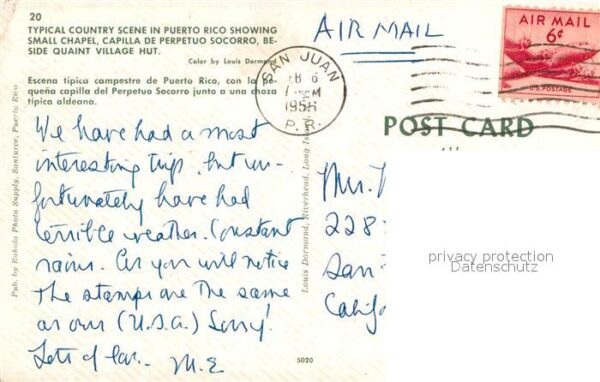 20
TYPICAL COUNTRY SCENE IN PUERTO RICO SHOWING
SMALL CHAPEL, CAPILLA DE PERPETUO SOCORRO, BE-
SIDE QUAINT VILLAGE HUT.
Color by Louis Dormand
Escena tipica campestre de Puerto Rico, con la pe-
queña capilla del Perpetuo Socorro junto a una choza
tipica aldeana.
AIR MAIL
SAN JUAN
6
1958
P.R.
AIR MAIL
6¢
U.S. POSTAGE
POST CARD
We have had a most
interesting trip, but un-
fortunately have had
terrible weather. Constant
rains. As you will notice
the stamps are the same
as our (U.S.A.) Sorry!
Lots of luv-
M.E
5020
Pub. by Rahola Photo Supply, Santurce, Puerto Rico
Louis Dormand, Riverhead, Long Island
Mr.
228
San
Califo
privacy protection
Datenschutz